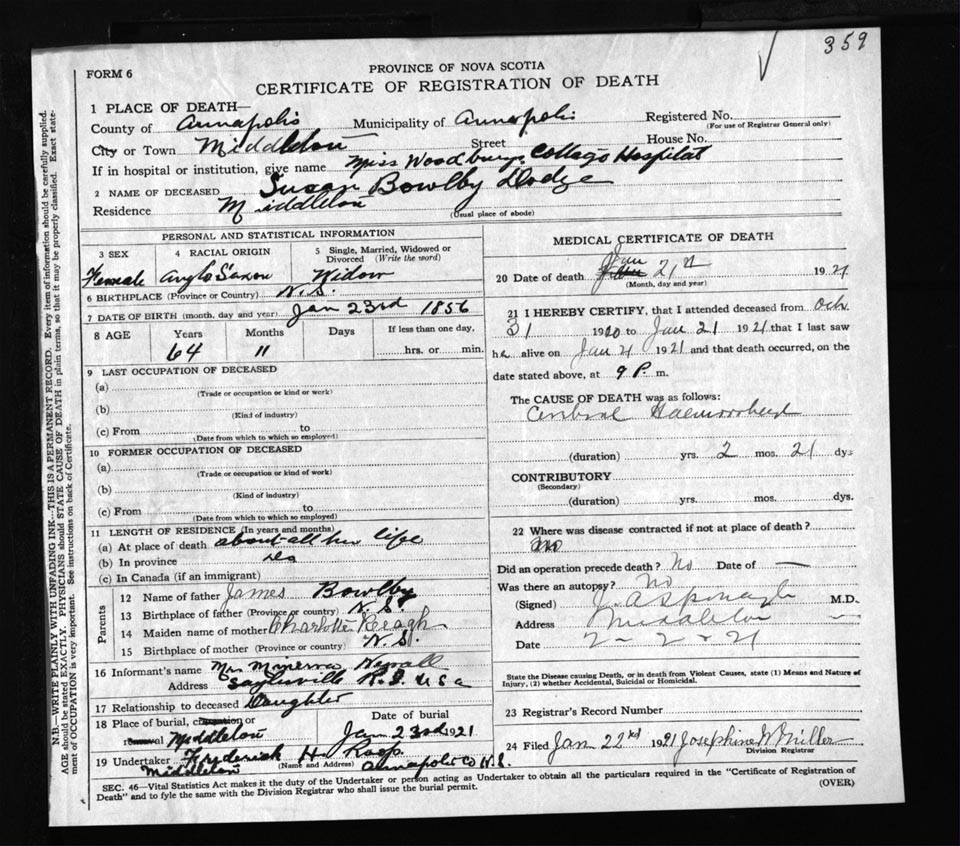 359
PROVINCE OF NOVA SCOTIA
FORM 6
CERTIFICATE OF REGISTRATION OF DEATH
1 PLACE OF DEATH—
County of Annapolis Municipality of Annapolis Registered No.
(For use of Registrar General only)
City or Town Middleton Street House No.
If in hospital or institution, give name Miss Woodburys Cottage Hospital
2 NAME OF DECEASED Susan Bowlby Dodge
Residence Middleton
(Usual place of abode)
PERSONAL AND STATISTICAL INFORMATION
3 SEX 4 RACIAL ORIGIN 5 Single, Married, Widowed or Divorced (Write the word)
Female Anglo Saxon Widow
6 BIRTHPLACE (Province or Country) N.S.
7 DATE OF BIRTH (month, day and year) Jan 23rd 1856
8 AGE Years Months Days If less than one day,
64 11 hrs. or min.
9 LAST OCCUPATION OF DECEASED
(a)
(Trade or occupation or kind or work)
(b)
(Kind of industry)
(c) From to
(Date from which to which so employed)
10 FORMER OCCUPATION OF DECEASED
(a)
(Trade or occupation or kind of work)
(b)
(Kind of industry)
(c) From to
(Date from which to which so employed)
11 LENGTH OF RESIDENCE (In years and months)
(a) At place of death about all her life
(b) In province do
(c) In Canada (if an immigrant)
Parents
12 Name of father James Bowlby
13 Birthplace of father (Province or country) N.S.
14 Maiden name of mother Charlotte Keagh
15 Birthplace of mother (Province or country) N.S.
16 Informant's name Mrs Minerva
Address Saylesville R.I. USa
17 Relationship to deceased Daughter
18 Place of burial, cremation or removal Middleton
Date of burial
Jan 23rd 1921
19 Undertaker Frederick H Roop
(Name and Address)
Middleton Annapolis Co N.S.
MEDICAL CERTIFICATE OF DEATH
20 Date of death Jan 21st 1921
(Month, day and year)
21 I HEREBY CERTIFY, that I attended deceased from Oct
31 1920 to Jan 21 1921 that I last saw
her alive on Jan 21 1921 and that death occurred, on the
date stated above, at 9 P. m.
The CAUSE OF DEATH was as follows:
Cerebral Haemorrhage
(duration) yrs. 2 mos. 21 dys
CONTRIBUTORY
(Secondary)
(duration) yrs. mos. dys.
22 Where was disease contracted if not at place of death?
Did an operation precede death? No Date of —
Was there an autopsy? No
(Signed) J. A Sponagle M.D.
Address Middleton
Date 2-2-21
State the Disease causing Death, or in death from Violent Causes, state (1) Means and Nature of
Injury, (2) whether Accidental, Suicidal or Homicidal.
23 Registrar's Record Number
24 Filed Jan 22nd 1921 Josephine W Miller
Division Registrar
SEC. 46—Vital Statistics Act makes it the duty of the Undertaker or person acting as Undertaker to obtain all the particulars required in the "Certificate of Registration of
Death" and to fyle the same with the Division Registrar who shall issue the burial permit.
(OVER)
N.B.—WRITE PLAINLY WITH UNFADING INK—THIS IS A PERMANENT RECORD. Every item of information should be carefully supplied.
AGE should be stated EXACTLY. PHYSICIANS should STATE CAUSE OF DEATH in plain terms, so that it may be properly classified. Exact state-
ment of OCCUPATION is very important. See instructions on back of Certificate.